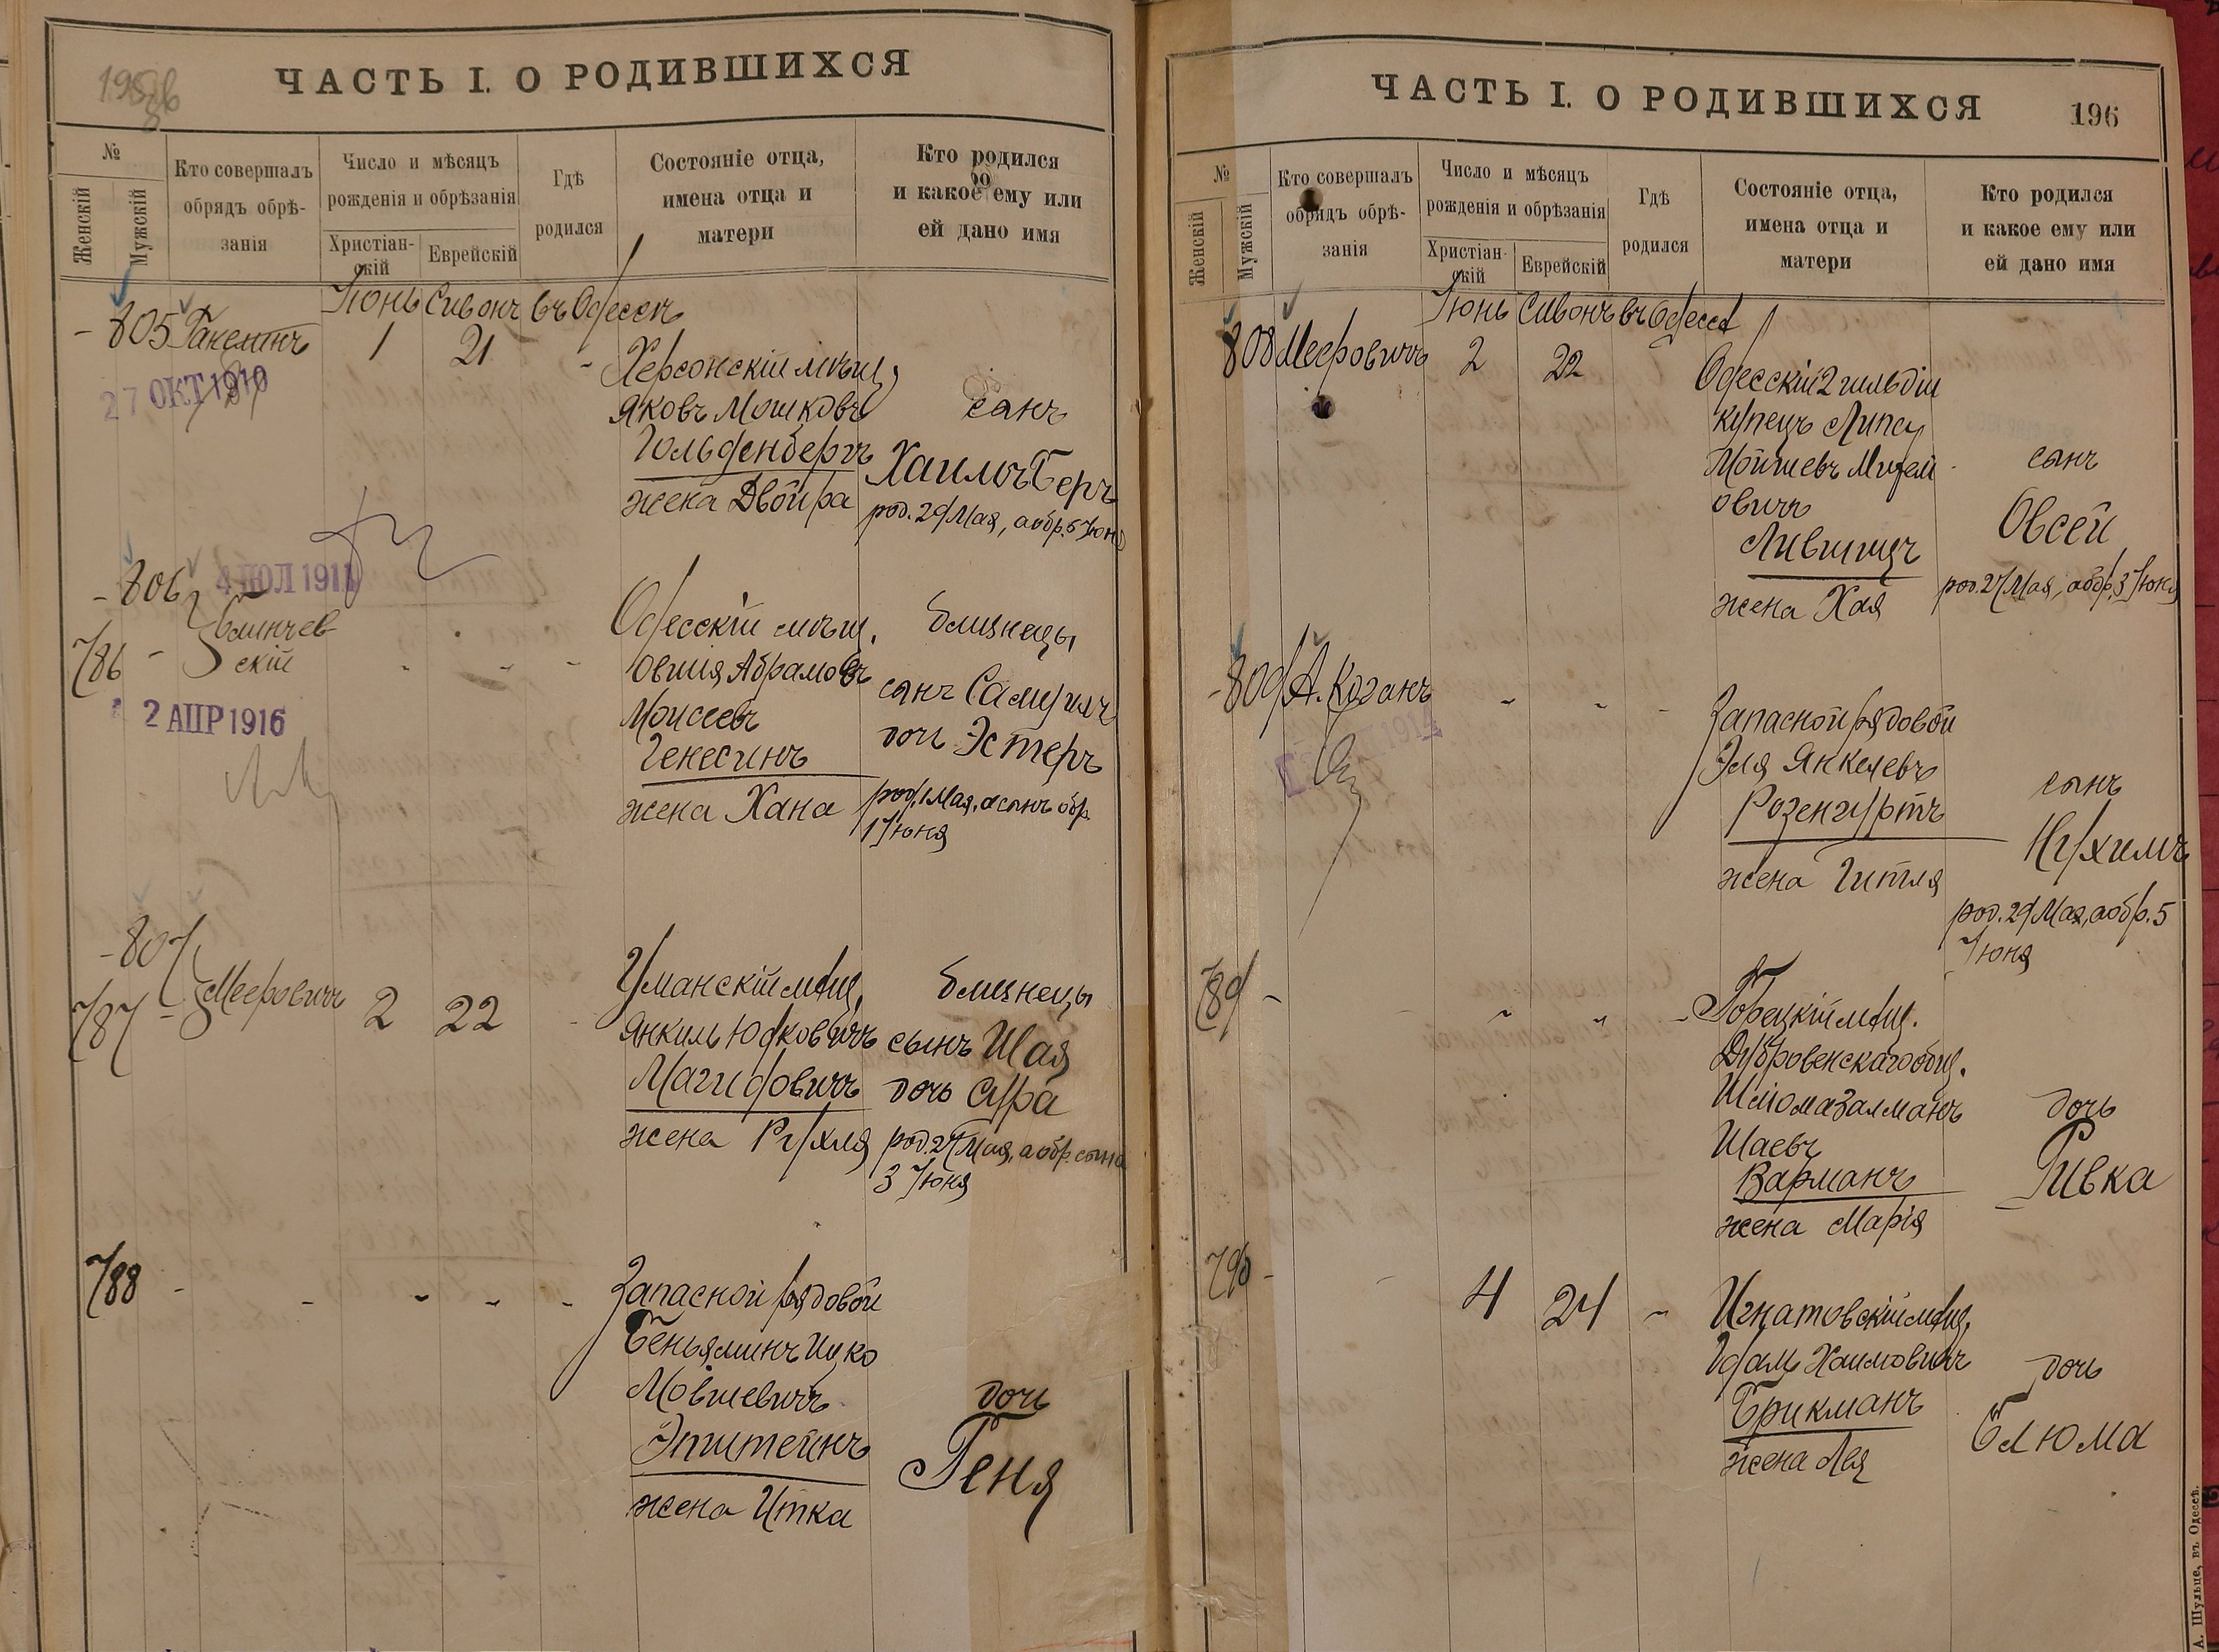 195об
ЧАСТЬ I. О РОДИВШИХСЯ
№
Женскій
Мужскій
Кто совершалъ
обрядъ обрѣ-
занія
Число и мѣсяцъ
рожденія и обрѣзанія
Христіан-
скій
Еврейскій
Гдѣ
родился
Состояніе отца,
имена отца и
матери
Кто родился
и какое ему или
ей дано имя
Іюнь Сивонъ въ Одессѣ
805
1
21
27 ОКТ 1910
Херсонскій мѣщ,
Яковъ Мошковъ
Гольденбергъ
жена Двойра
сынъ
Хаимъ Беръ
род. 29 Мая, а обр. 5 Іюня
806
786
4 ІЮЛ 1911
2 АПР 1916
Одесскій мѣщ.
Овшія Абрамовъ
Моисеевъ
Генесинъ
жена Хана
близнецы
сынъ Самуилъ
дочь Эстеръ
1 Іюня
807
787
Мееровичъ
2
22
Уманскій мѣщ,
Янкиль Юдковичъ
Магидовичъ
жена Рухля
близнецы
сынъ Шая
дочь Сура
род. 27 Мая, а обр. сына
3 Іюня
788
Запасной рядовой
Беньяминъ Ицко
Мовшевичъ
Эпштейнъ
жена Итка
дочь
Геня
ЧАСТЬ I. О РОДИВШИХСЯ
196
№
Женскій
Мужскій
Кто совершалъ
обрядъ обрѣ-
занія
Число и мѣсяцъ
рожденія и обрѣзанія
Христіан-
скій
Еврейскій
Гдѣ
родился
Состояніе отца,
имена отца и
матери
Кто родился
и какое ему или
ей дано имя
Іюнь Сивонъ въ Одессѣ
808
Мееровичъ
2
22
Одесскій 2 гильдіи
купецъ Липа
Мойшевъ
овичъ
Лившицъ
жена Хая
сынъ
Овсей
род. 27 Мая, а обр. 3 Іюня
809
А. Коганъ
Запасной рядовой
Эля Янкелевъ
Розенгуртъ
жена Гитля
сынъ
Нухимъ
род. 29 Мая, а обр. 5
Іюня
789
мѣщ.
Дубровенскаго общ.
Шліома Залманъ
Шаевъ
Варманъ
жена Марія
дочь
Ривка
790
4
24
Игнатовскій мѣщ,
Гдаль Хаимовичъ
Брикманъ
жена Лея
дочь
Блюма
А. Шульце, въ Одессѣ.